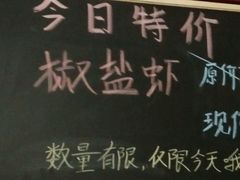 今日特价
椒盐虾 原价
现价
数量有限,仅限今天